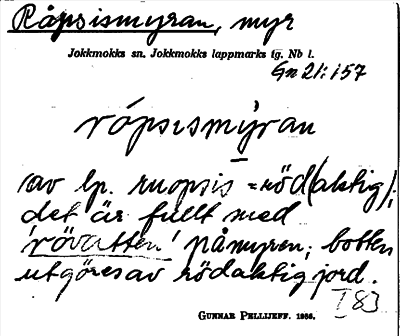 Råpsismyran, myr
Jokkmokks sn. Jokkmokks lappmarks tg. Nb l.
Gn 21:157
rópsismỳran
av lp. ruopsis = röd(aktig);
det är fullt med
'rövatten' på myren; botten
utgöres av rödaktig jord.
I 83
GUNNAR PELLIJEFF. 1956.